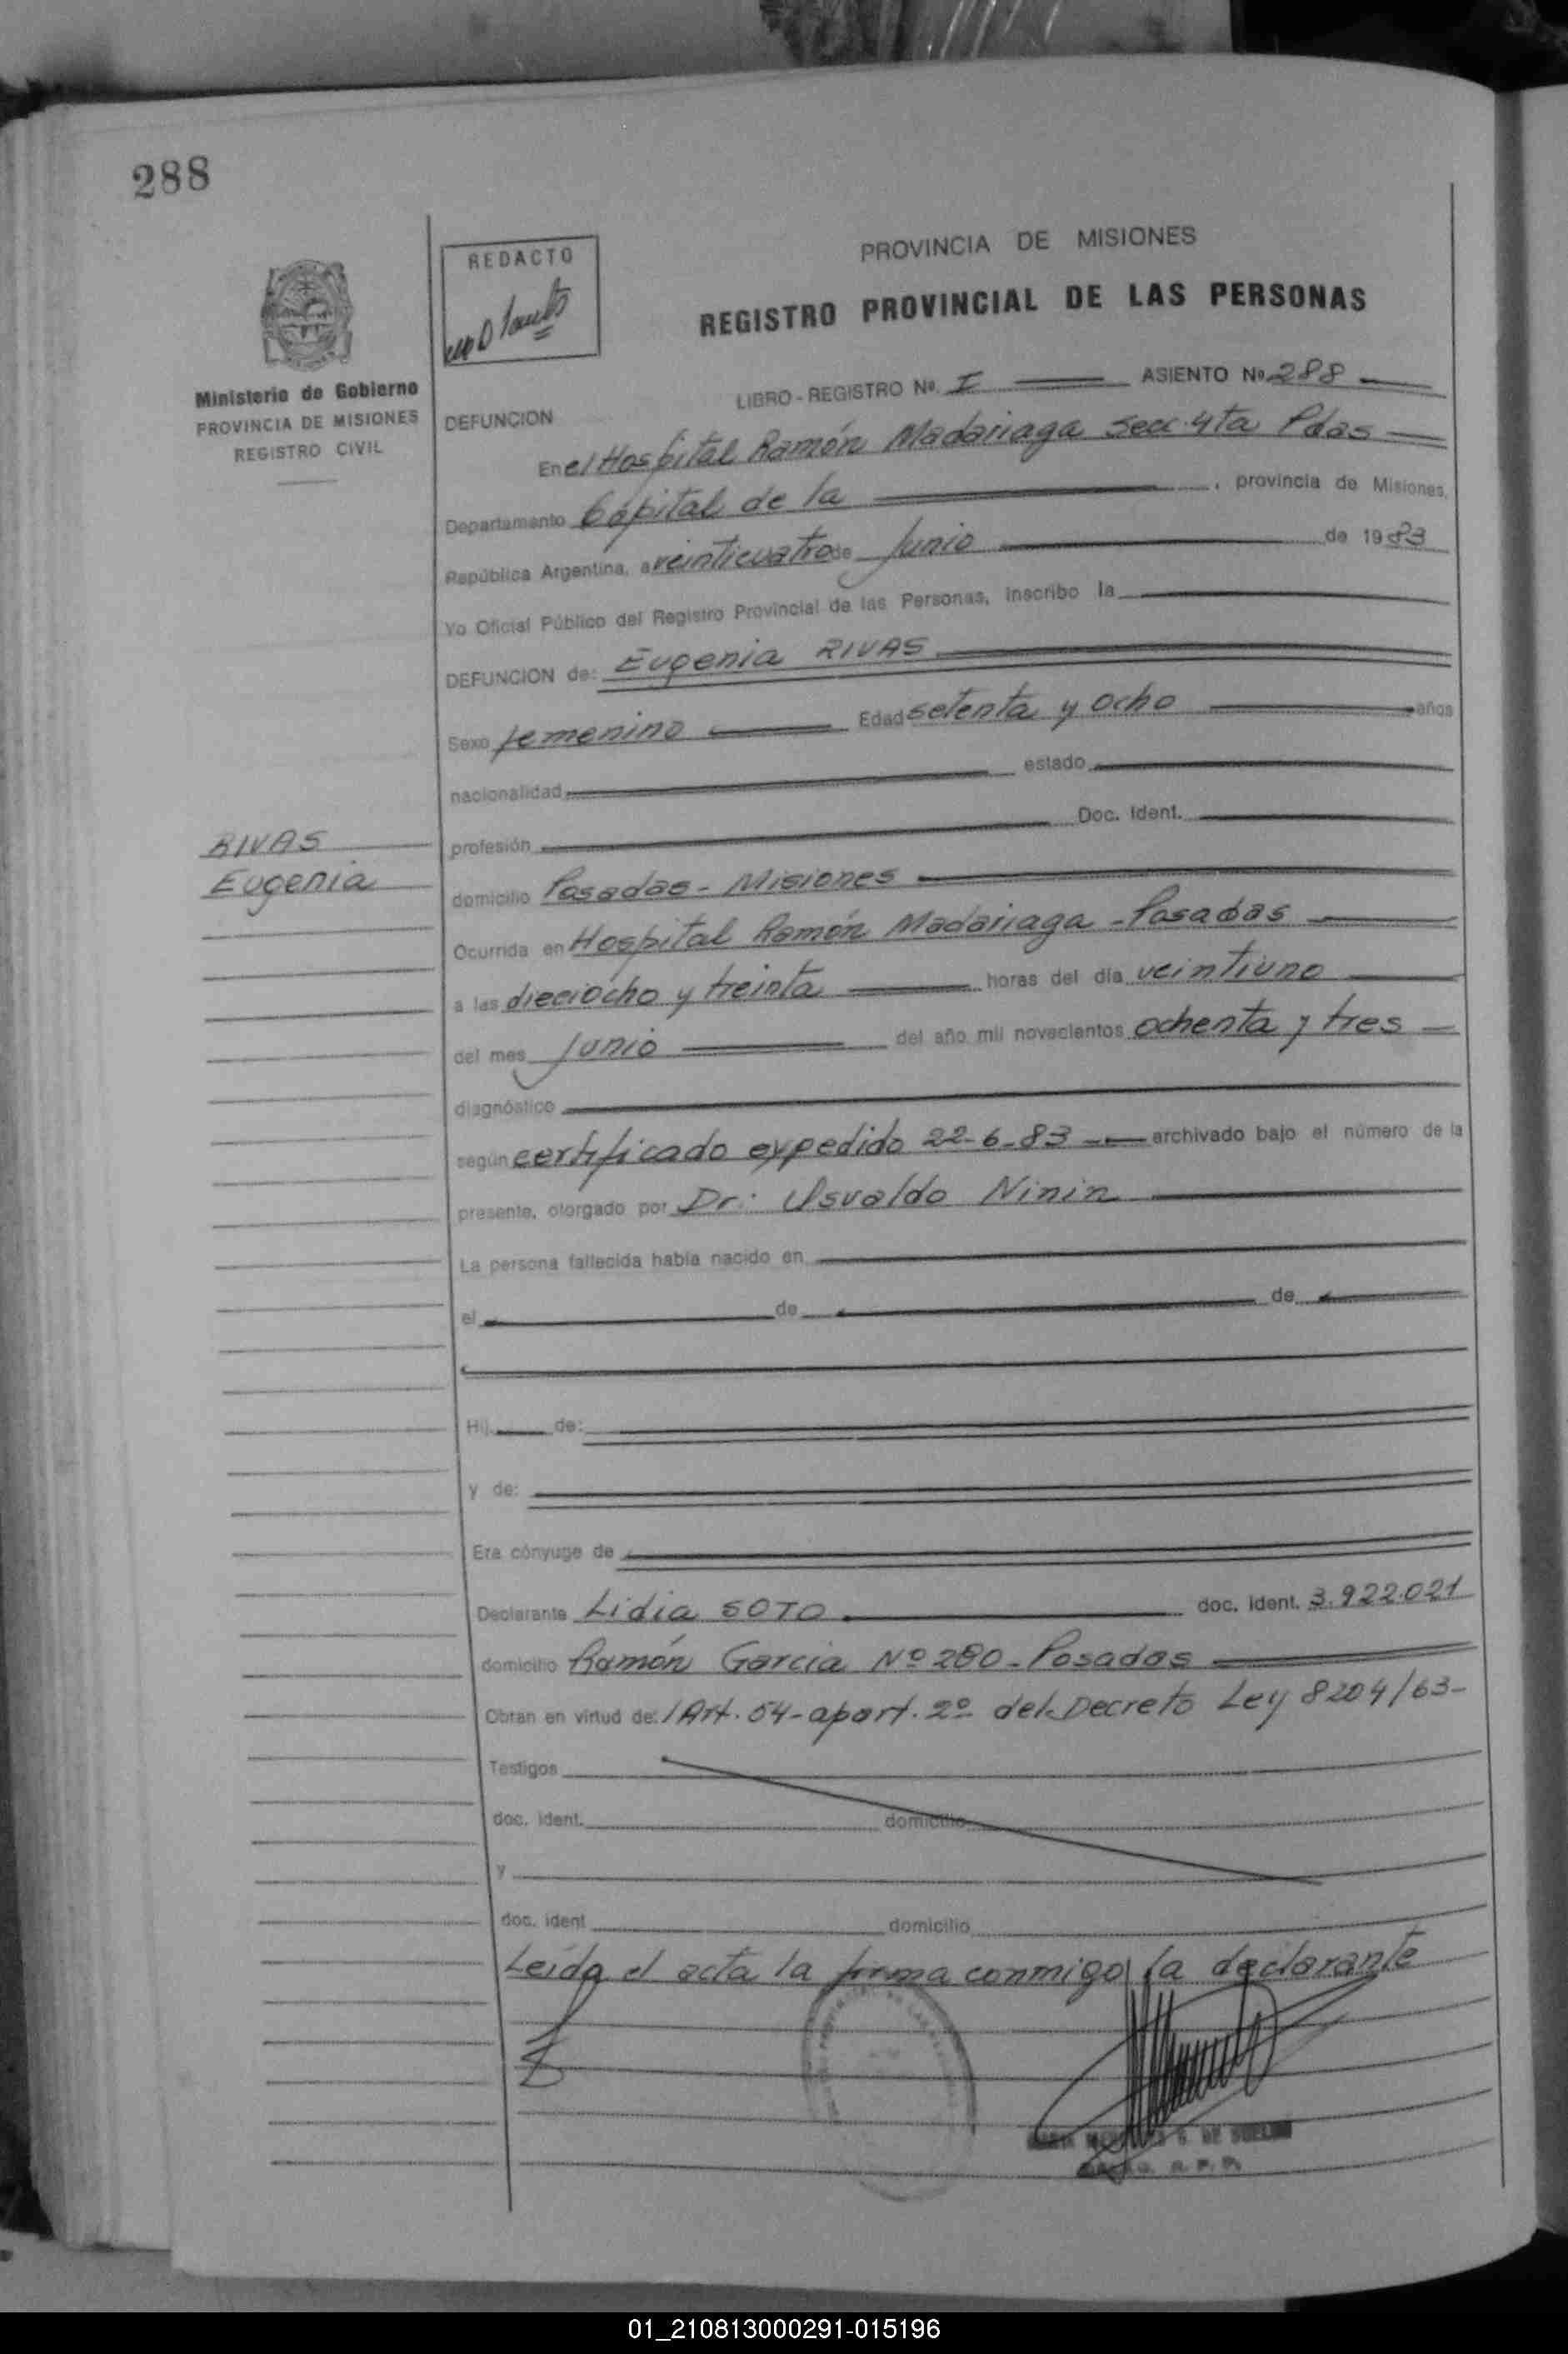 288
REDACTO
Ministerio de Gobierno
PROVINCIA DE MISIONES
REGISTRO CIVIL
PROVINCIA DE MISIONES
REGISTRO PROVINCIAL DE LAS PERSONAS
LIBRO - REGISTRO Nº. I ASIENTO Nº 288
DEFUNCION
En el Hospital Ramón Madariaga Secc. 4ta Pdas
Departamento Capital de la , provincia de Misiones,
República Argentina, a veinticuatro de Junio de 1983
Yo Oficial Público del Registro Provincial de las Personas, inscribo la
DEFUNCION de: Eugenia RIVAS
Sexo femenino Edad setenta y ocho años
nacionalidad estado
profesión Doc. Ident.
RIVAS
Eugenia
domicilio Posadas - Misiones
Ocurrida en Hospital Ramón Madariaga - Posadas
a las dieciocho y treinta horas del día veintiuno
del mes Junio del año mil novecientos ochenta y tres
diagnóstico
según certificado expedido 22-6-83 archivado bajo el número de la
presente, otorgado por Dr: Osvaldo Ninin
La persona fallecida había nacido en
el de de
Hij de:
y de:
Era cónyuge de
Declarante Lidia SOTO doc. ident. 3.922.021
domicilio Ramón Garcia Nº 280 - Posadas
Obran en virtud de: /Art. 54 - apart. 2º del Decreto Ley 8204/63-
Testigos
doc. ident. domicilio
y
doc. ident domicilio
Leída el acta la firma conmigo la declarante
01_210813000291-015196